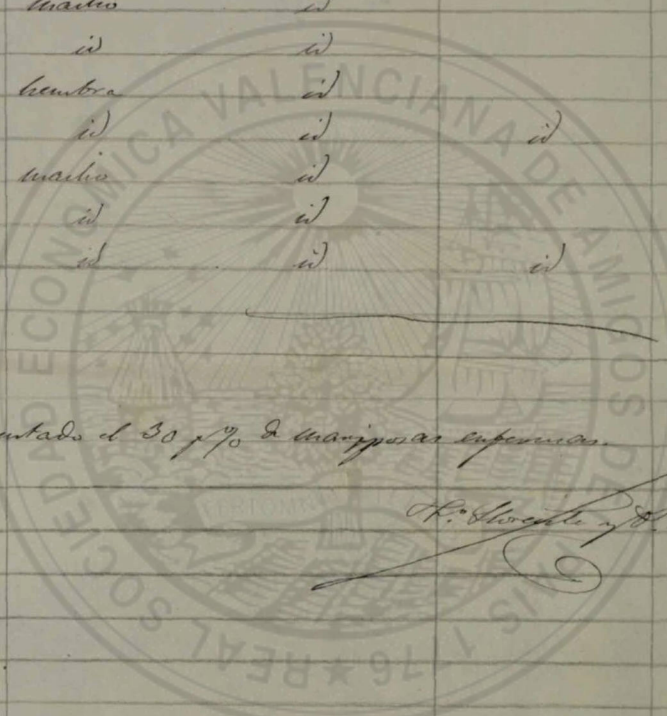 macho id
id id
hembra id
id id id
macho id
id id
id id id
entado el 30 p% de mariposas enfermas.
Llorente y
REAL SOCIEDAD ECONOMICA VALENCIANA DE AMIGOS DEL PAIS 1776